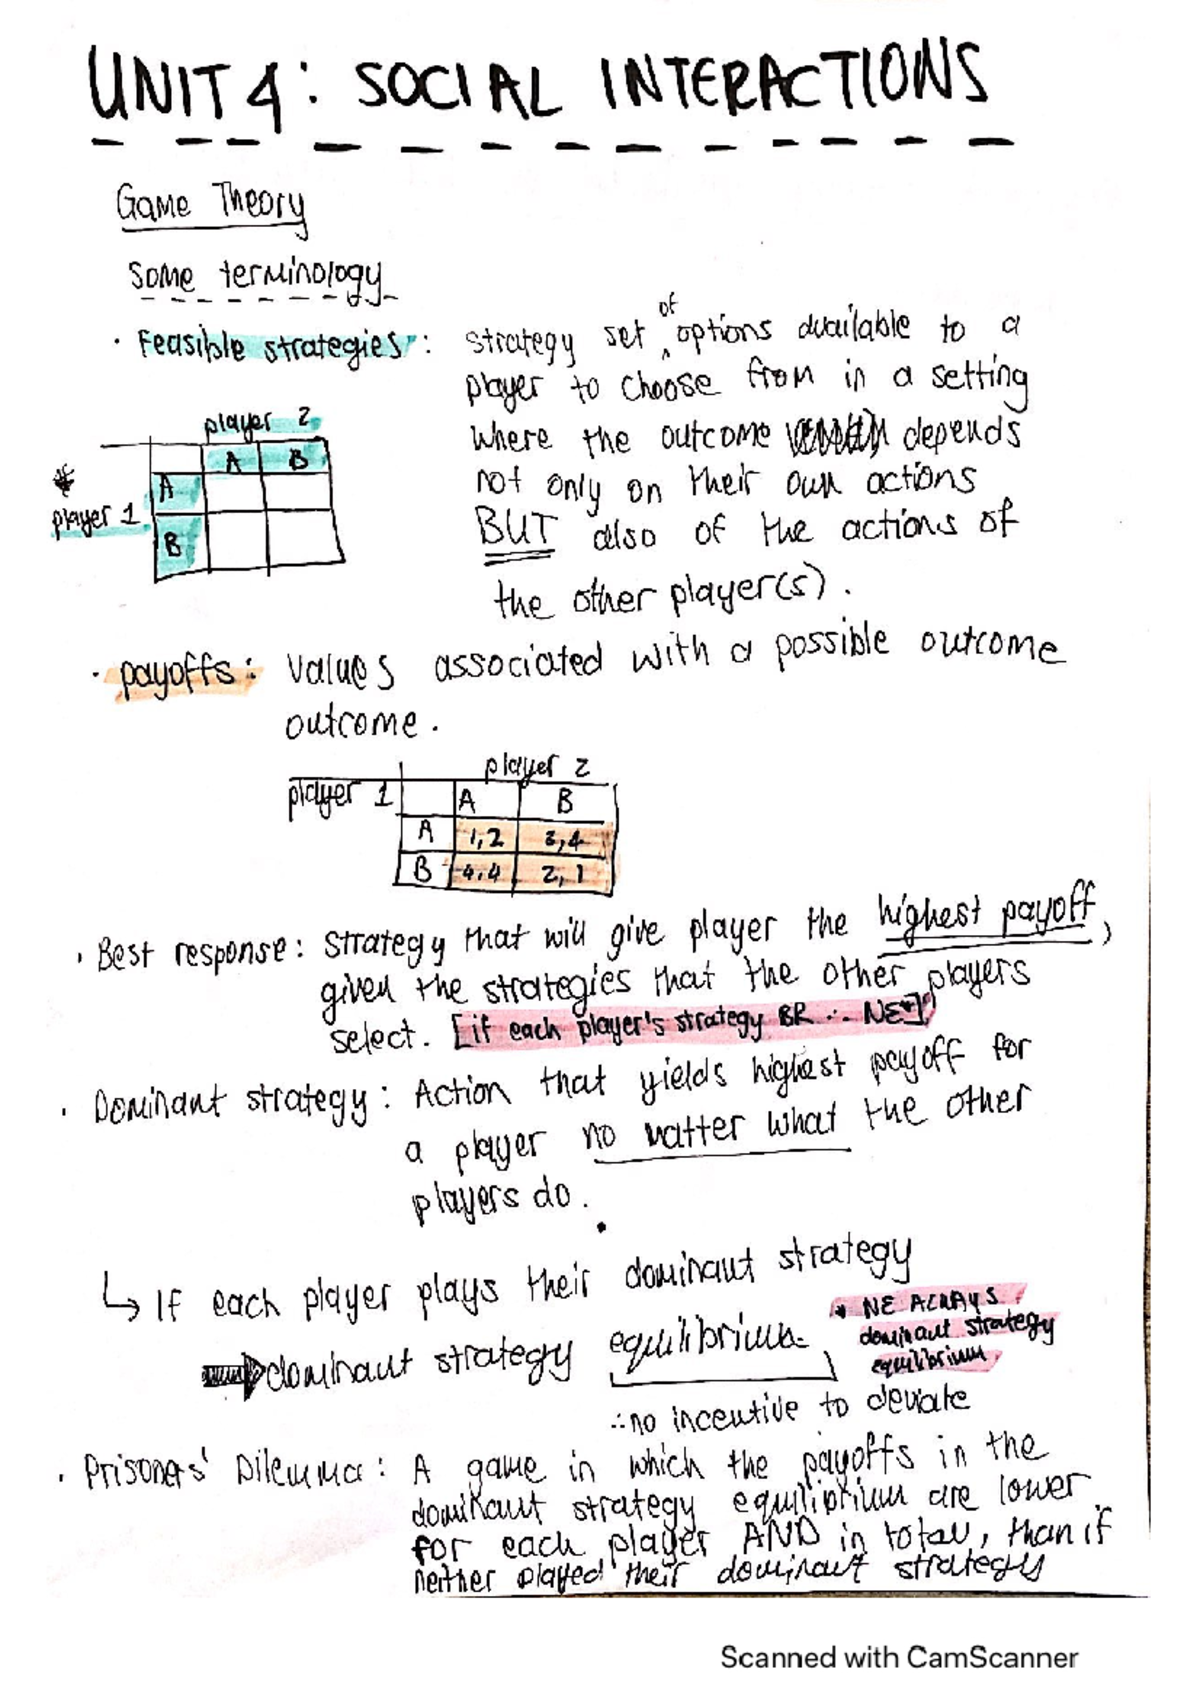 UNIT 4: SOCIAL INTERACTIONS
Game Theory
Some terminology
· Feasible strategies: strategy set of options available to a
player to choose from in a setting
where the outcome depends
not only on their own actions
BUT also of the actions of
the other player(s).
player 2
A B
* A
player 1
B
· payoffs: values associated with a possible outcome
outcome.
player 2
player 1 A B
A 1,2 3,4
B 4,4 2,1
· Best response: strategy that will give player the highest payoff,
given the strategies that the other players
select. [if each player's strategy BR ∴ NE*]
· Dominant strategy: Action that yields highest payoff for
a player no matter what the other
players do.
↳ If each player plays their dominant strategy
⇒ dominant strategy equilibrium.
* NE ALWAYS
dominant strategy
equilibrium
∴ no incentive to deviate
· Prisoners' Dilemma: A game in which the payoffs in the
dominant strategy equilibrium are lower
for each player AND in total, than if
neither played their dominant strategy
Scanned with CamScanner